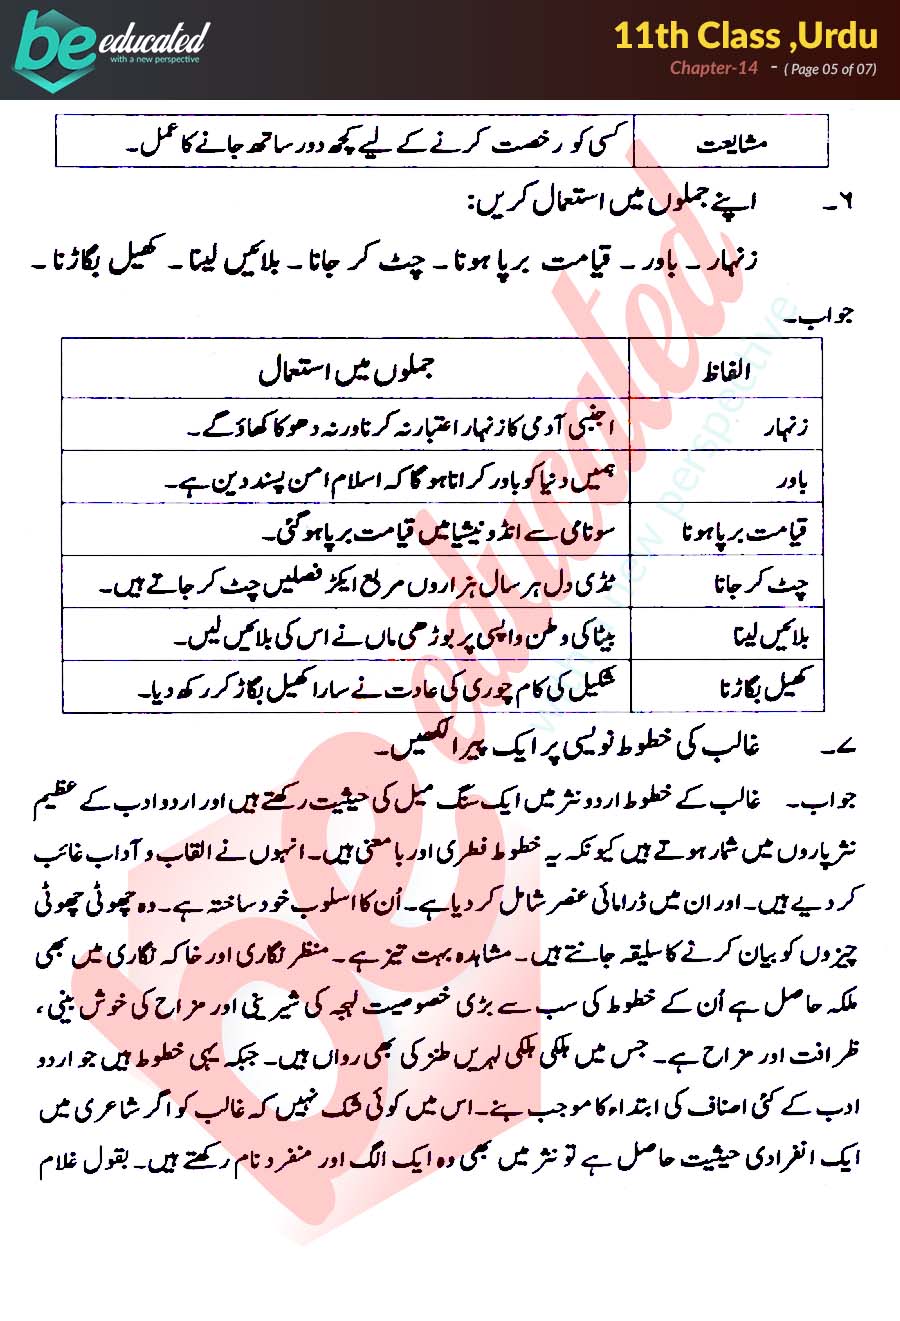 be educated
with a new perspective
11th Class ,Urdu
Chapter-14 - ( Page 05 of 07)
مشایعت کسی کو رخصت کرنے کے لیے کچھ دور ساتھ جانے کا عمل۔
۶۔ اپنے جملوں میں استعمال کریں:
زنہار۔ باور۔ قیامت برپا ہونا۔ چٹ کر جانا۔ بلائیں لینا۔ کھیل بگاڑنا۔
جواب۔
الفاظ جملوں میں استعمال
زنہار اجنبی آدمی کا زنہار اعتبار نہ کرنا ورنہ دھوکا کھاؤ گے۔
باور ہمیں دنیا کو باور کرانا ہوگا کہ اسلام امن پسند دین ہے۔
قیامت برپا ہونا سونامی سے انڈونیشیا میں قیامت برپا ہوگئی۔
چٹ کر جانا ٹڈی دل ہر سال ہزاروں مربع ایکڑ فصلیں چٹ کر جاتے ہیں۔
بلائیں لینا بیٹا کی وطن واپسی پر بوڑھی ماں نے اس کی بلائیں لیں۔
کھیل بگاڑنا شکیل کی کام چوری کی عادت نے سارا کھیل بگاڑ کر رکھ دیا۔
۷۔ غالب کی خطوط نویسی پر ایک پیرا لکھیں۔
جواب۔ غالب کے خطوط اردو نثر میں ایک سنگ میل کی حیثیت رکھتے ہیں اور اردو ادب کے عظیم
نثر پاروں میں شمار ہوتے ہیں کیونکہ یہ خطوط فطری اور بامعنی ہیں۔ انہوں نے القاب و آداب غائب
کر دیے ہیں۔ اور ان میں ڈرامائی عنصر شامل کر دیا ہے۔ اُن کا اسلوب خود ساختہ ہے۔ وہ چھوٹی چھوٹی
چیزوں کو بیان کرنے کا سلیقہ جانتے ہیں۔ مشاہدہ بہت تیز ہے۔ منظر نگاری اور خاکہ نگاری میں بھی
ملکہ حاصل ہے اُن کے خطوط کی سب سے بڑی خصوصیت لہجہ کی شیرینی اور مزاح کی خوش بینی،
ظرافت اور مزاح ہے۔ جس میں ہلکی ہلکی لہریں طنز کی بھی رواں ہیں۔ جبکہ یہی خطوط ہیں جو اردو
ادب کے کئی اصناف کی ابتداء کا موجب بنے۔ اس میں کوئی شک نہیں کہ غالب کو اگر شاعری میں
ایک انفرادی حیثیت حاصل ہے تو نثر میں بھی وہ ایک الگ اور منفرد نام رکھتے ہیں۔ بقول غلام
be educated
with a new perspective